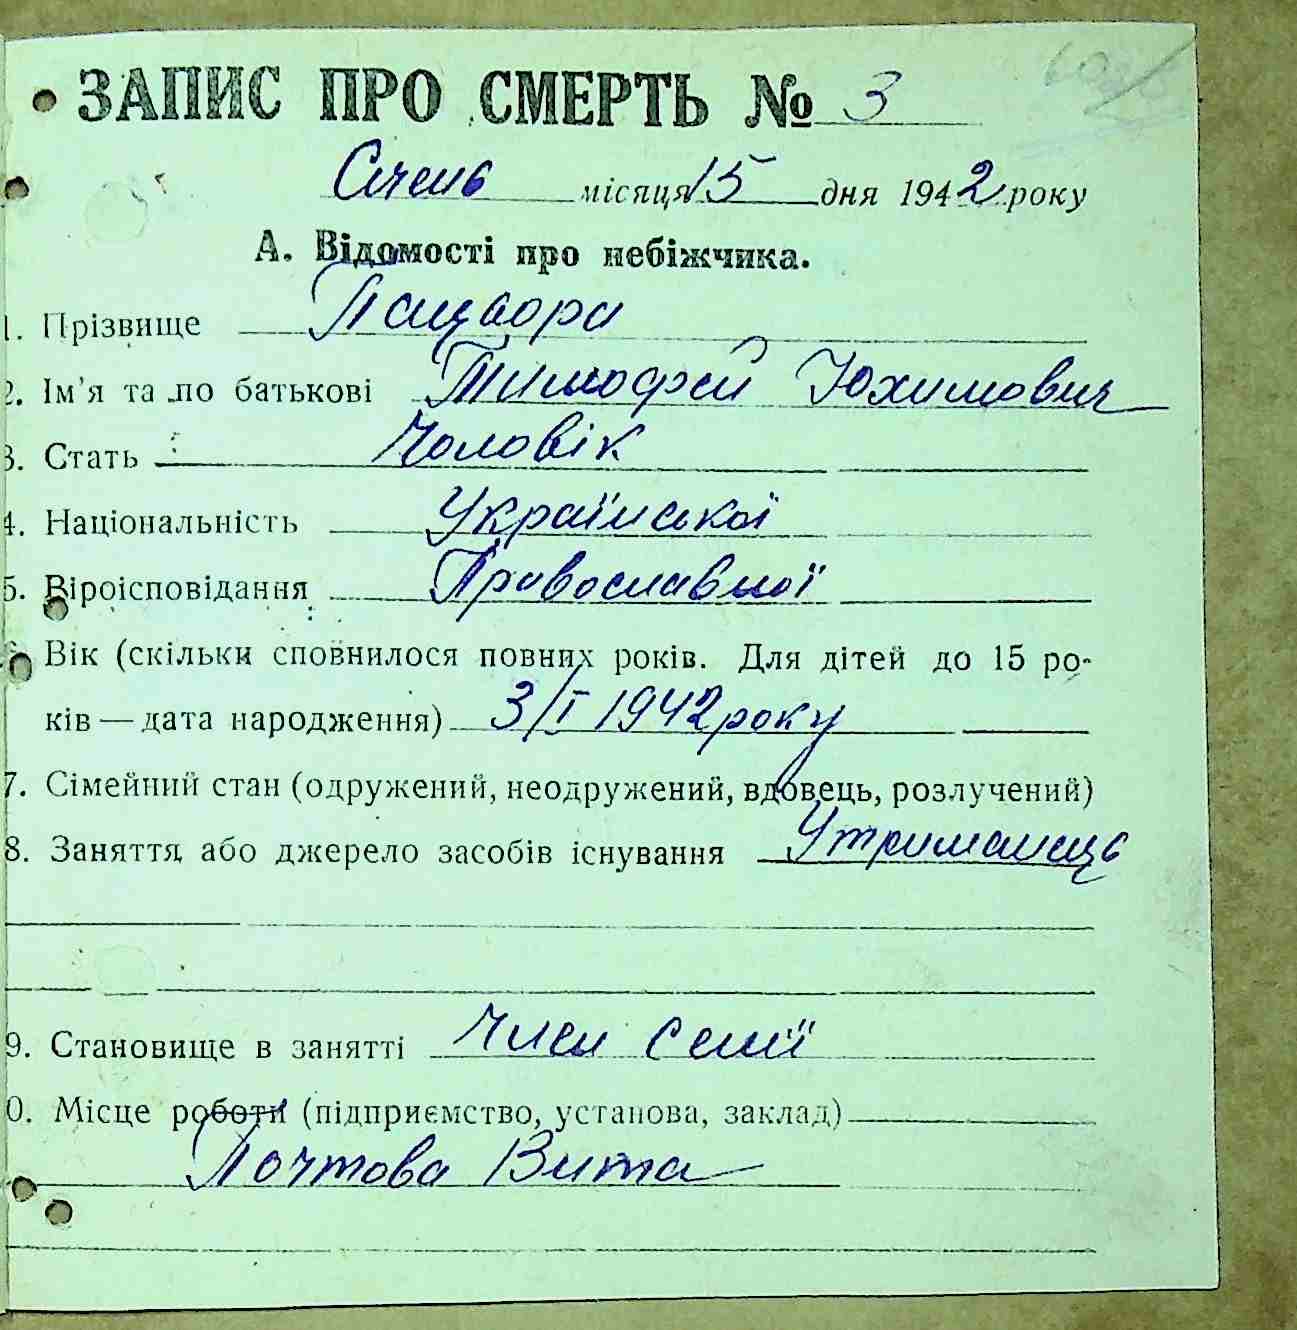 ЗАПИС ПРО СМЕРТЬ № 3
Січень місяця 15 дня 1942 року
А. Відомості про небіжчика.
1. Прізвище Пацвора
2. Ім'я та по батькові Тимофей Юхимович
3. Стать Чоловік
4. Національність Української
5. Віроісповідання Православної
Вік (скільки сповнилося повних років. Для дітей до 15 ро-
ків — дата народження) 3/I 1942 року
7. Сімейний стан (одружений, неодружений, вдовець, розлучений)
8. Заняття або джерело засобів існування Утриманець
9. Становище в занятті Член семії
0. Місце роботи (підприємство, установа, заклад)
Почтова Вита